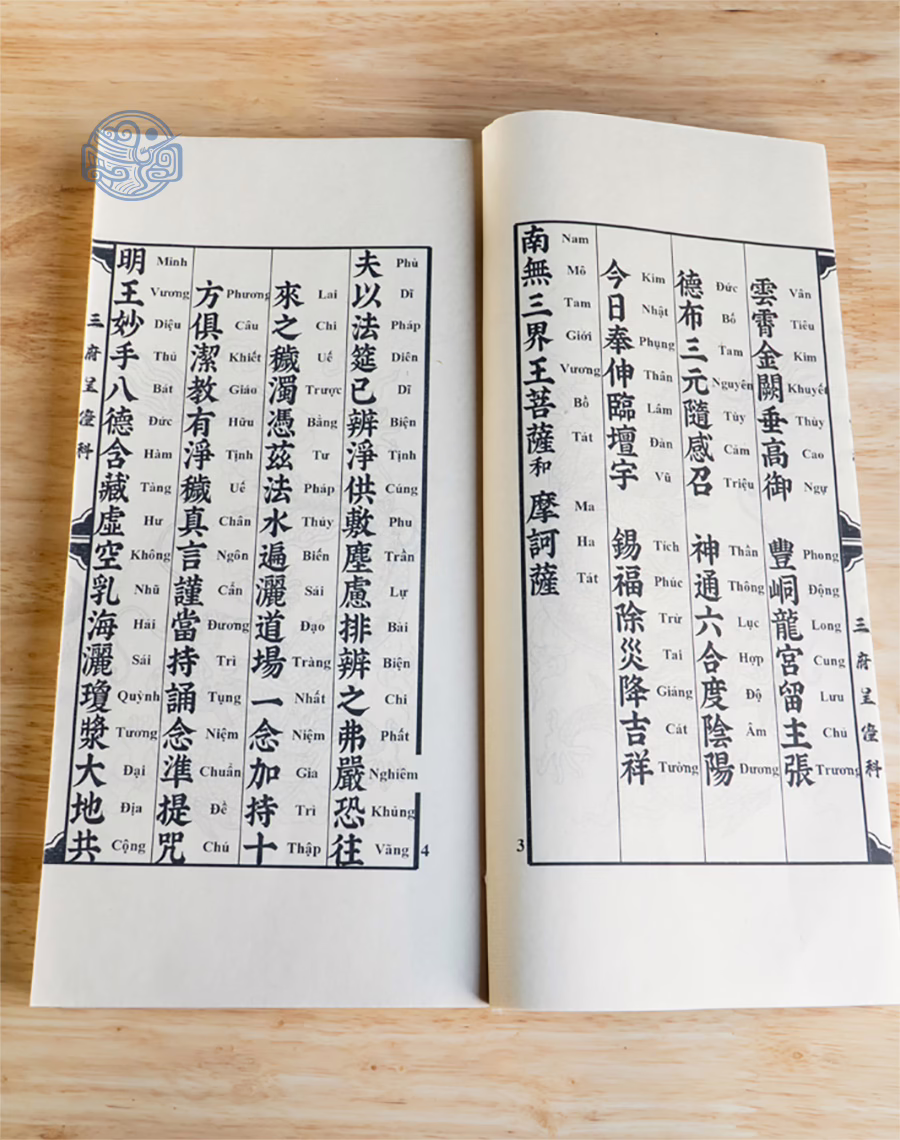 三府呈僮科
雲霄金闕垂高御 豐峒龍宮留主張
Vân Tiêu Kim Khuyết Thùy Cao Ngự Phong Động Long Cung Lưu Chủ Trương
德布三元隨感召 神通六合度陰陽
Đức Bố Tam Nguyên Tùy Cảm Triệu Thần Thông Lục Hợp Độ Âm Dương
今日奉伸臨壇宇 錫福除災降吉祥
Kim Nhật Phụng Thân Lâm Đàn Vũ Tích Phúc Trừ Tai Giáng Cát Tường
南無三界王菩薩和 摩訶薩
Nam Mô Tam Giới Vương Bồ Tát Ma Ha Tát
3
夫以法筵已辨淨供敷塵慮排辨之弗嚴恐往
Phù Dĩ Pháp Diên Dĩ Biện Tịnh Cúng Phu Trần Lự Bài Biện Chi Phất Nghiêm Khủng Vãng
4
來之穢濁憑茲法水遍灑道場一念加持十
Lai Chi Uế Trược Bằng Tư Pháp Thủy Biến Sái Đạo Tràng Nhất Niệm Gia Trì Thập
方俱潔教有淨穢真言謹當持誦念準提咒
Phương Câu Khiết Giáo Hữu Tịnh Uế Chân Ngôn Cẩn Đương Trì Tụng Niệm Chuẩn Đề Chú
明王妙手八德含藏虛空乳海灑瓊漿大地共
Minh Vương Diệu Thủ Bát Đức Hàm Tàng Hư Không Nhũ Hải Sái Quỳnh Tương Đại Địa Cộng
三府呈僮科